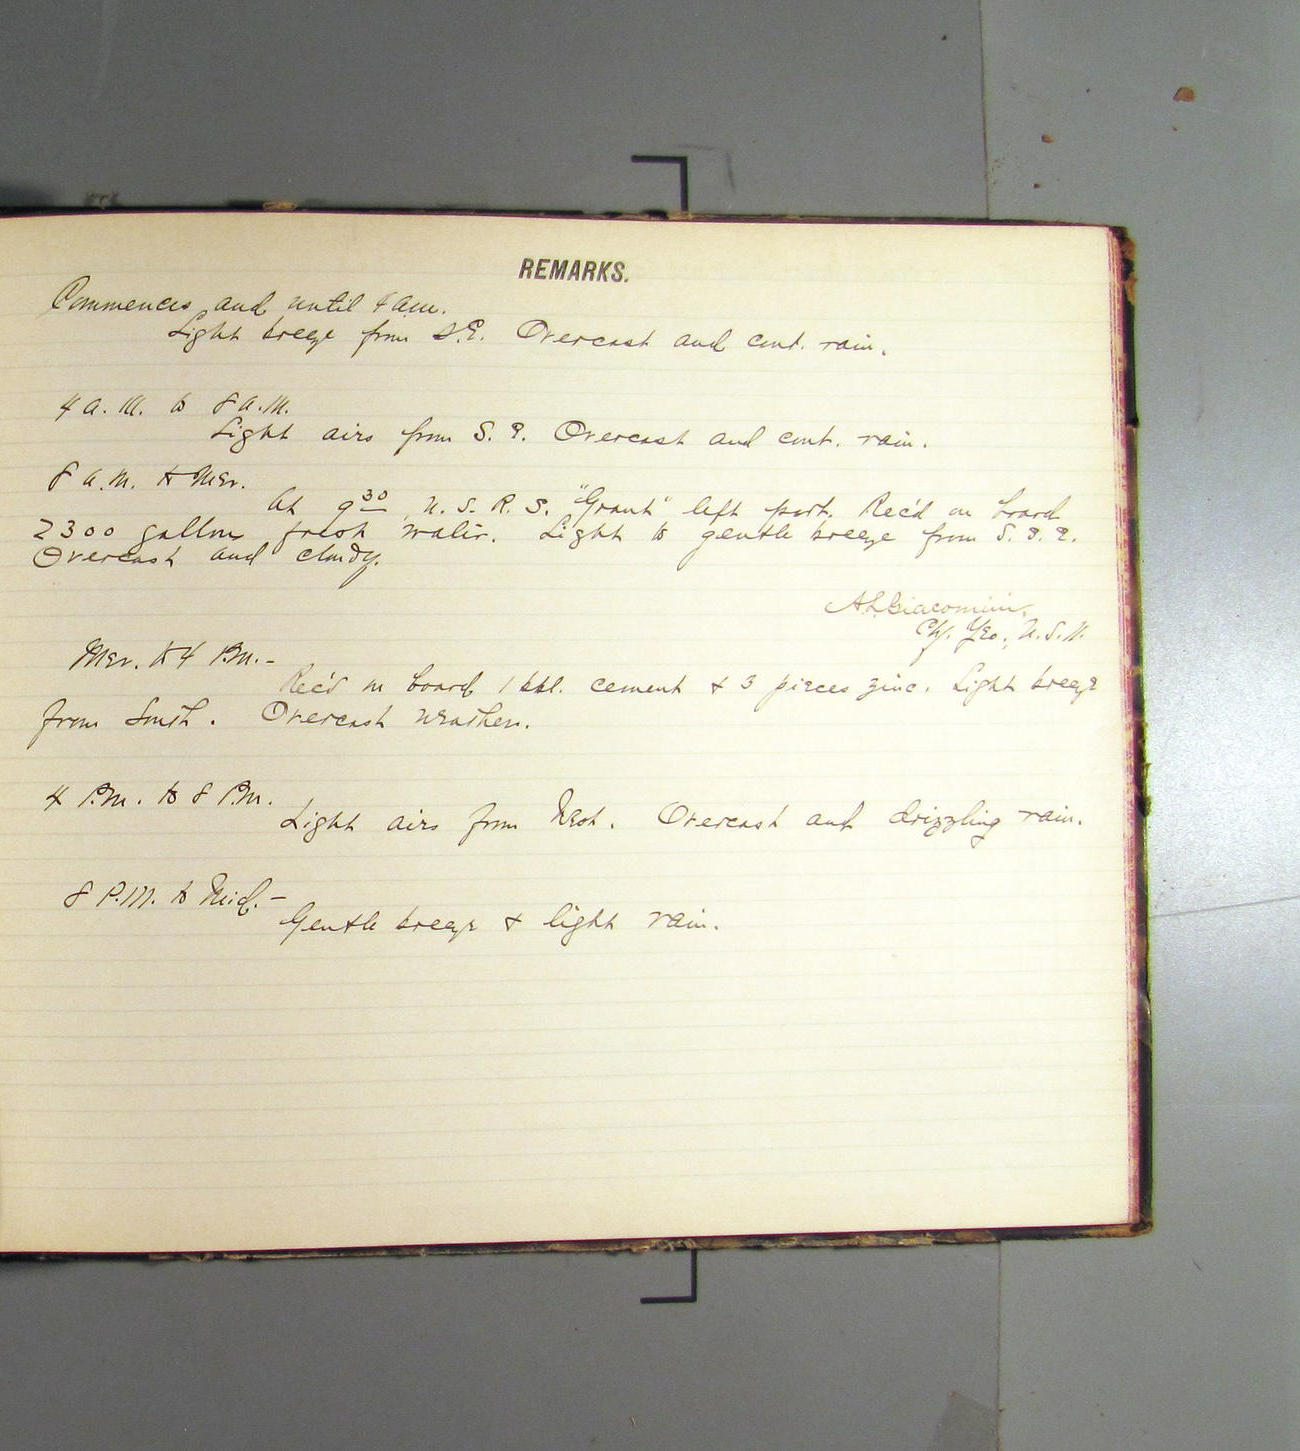 REMARKS.
Commences and until 4 a.m.
Light breeze from S.E. Overcast and cont. rain.
4 a.m. to 8 a.m.
Light airs from S. E. Overcast and cont. rain.
8 a.m. to Mer.
At 9 30 U. S. R. S. "Grant" left port. Rec'd on board
2300 gallons fresh water. Light to gentle breeze from S. S. E.
Overcast and cloudy.
A L Giacomini,
Chf. Yeo, U.S.N.
Mer. to 4 P.m.-
Rec'd on board 1 bbl. cement & 3 pieces zinc. Light breeze
from South. Overcast weather.
4 P.m. to 8 P.m.
Light airs from West. Overcast and drizzling rain.
8 P.M. to Mid.-
Gentle breeze & light rain.